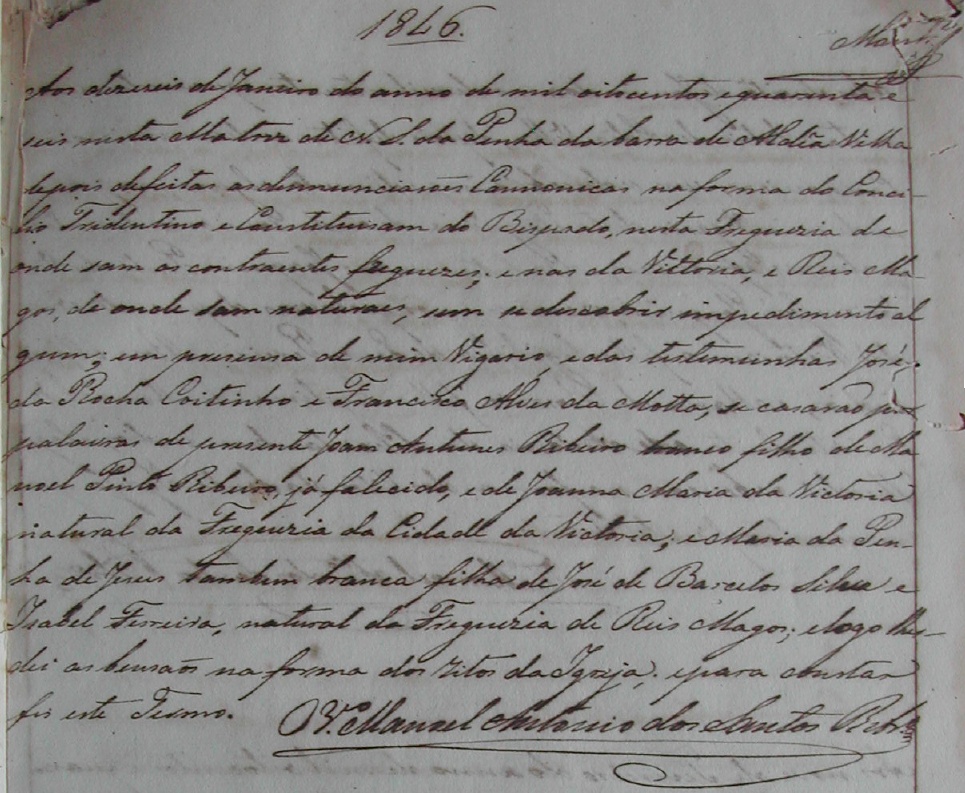 1846.
Aos dezeseis de Janeiro do anno de mil oitocentos e quarenta e
seis nesta Matriz de N. S. da Penha da barra de Aldêa Velha
depois de feitas as denunciasoẽs Cannonicas na forma do Conci-
lio Tridentino e Constituisam do Bispado, nesta Freguezia de
onde sam os contraentes freguezes; e nas da Vittoria, e Reis Ma-
gos, de onde sam naturaes, sem se descobrir impedimento al
gum; em presensa de mim Vigario, e das testemunhas José
da Rocha Coitinho e Francisco Alves da Motta, se casarão por
palavras de presente Joam Antunes Ribeiro branco filho de Ma
noel Pinto Ribeiro, já falecido, e de Joanna Maria da Victoria
natural da Freguezia da Cidade da Victoria; e Maria da Pen-
ha de Jesus tambem branca filha de José de Barcelos Silva e
Isabel Ferreira, natural da Freguezia de Reis Magos; e logo lhes
dei as bensaõs na forma dos ritos da Igreja, e para constar
fis este Termo. O V.º Manoel Antonio dos Santos